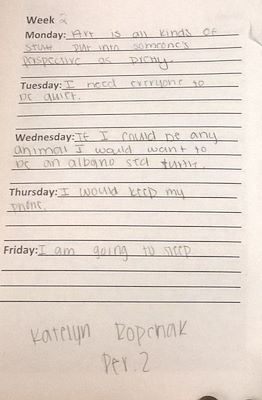 Week 2
Monday: Art is all kinds of
stuff put into someone's
perspective as pretty.
Tuesday: I need everyone to
be quiet.
Wednesday: If I could be any
animal I would want to
be an albano sea turtle.
Thursday: I would keep my
phone.
Friday: I am going to sleep
Katelyn Ropchak
Per. 2